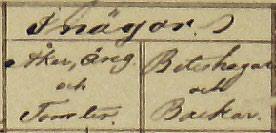 Inägor.
Åker, äng
och
Tomter.
Beteshagar
och
Backar.